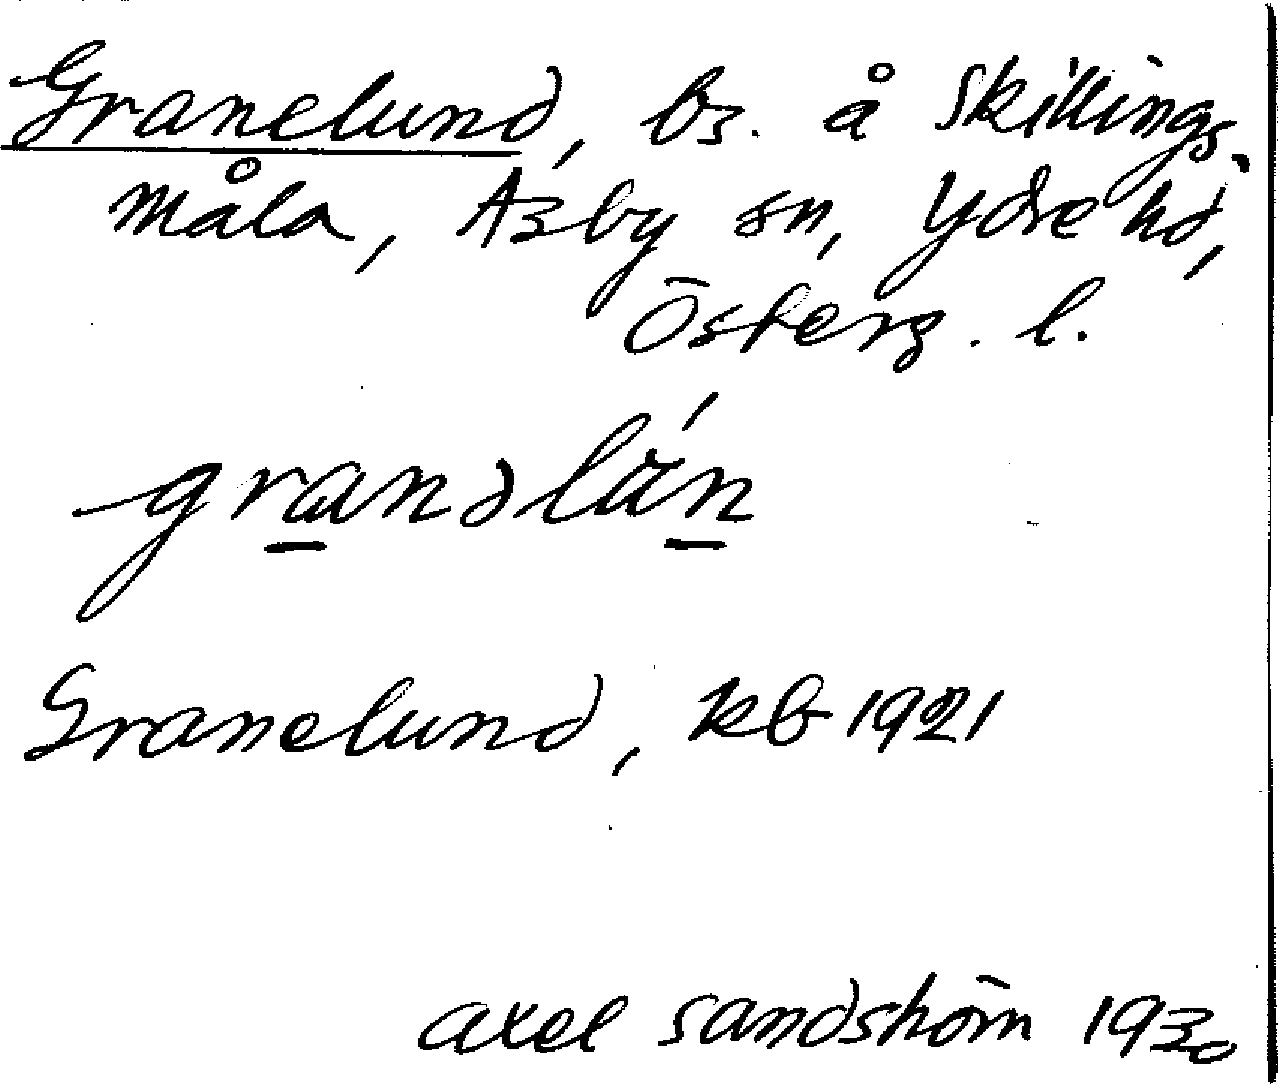 Granelund, bs. å Skillings-
måla, Asby sn, Ydre hd,
Österg. l.
granəlún
Granelund, kb 1921
Axel Sandström 1930